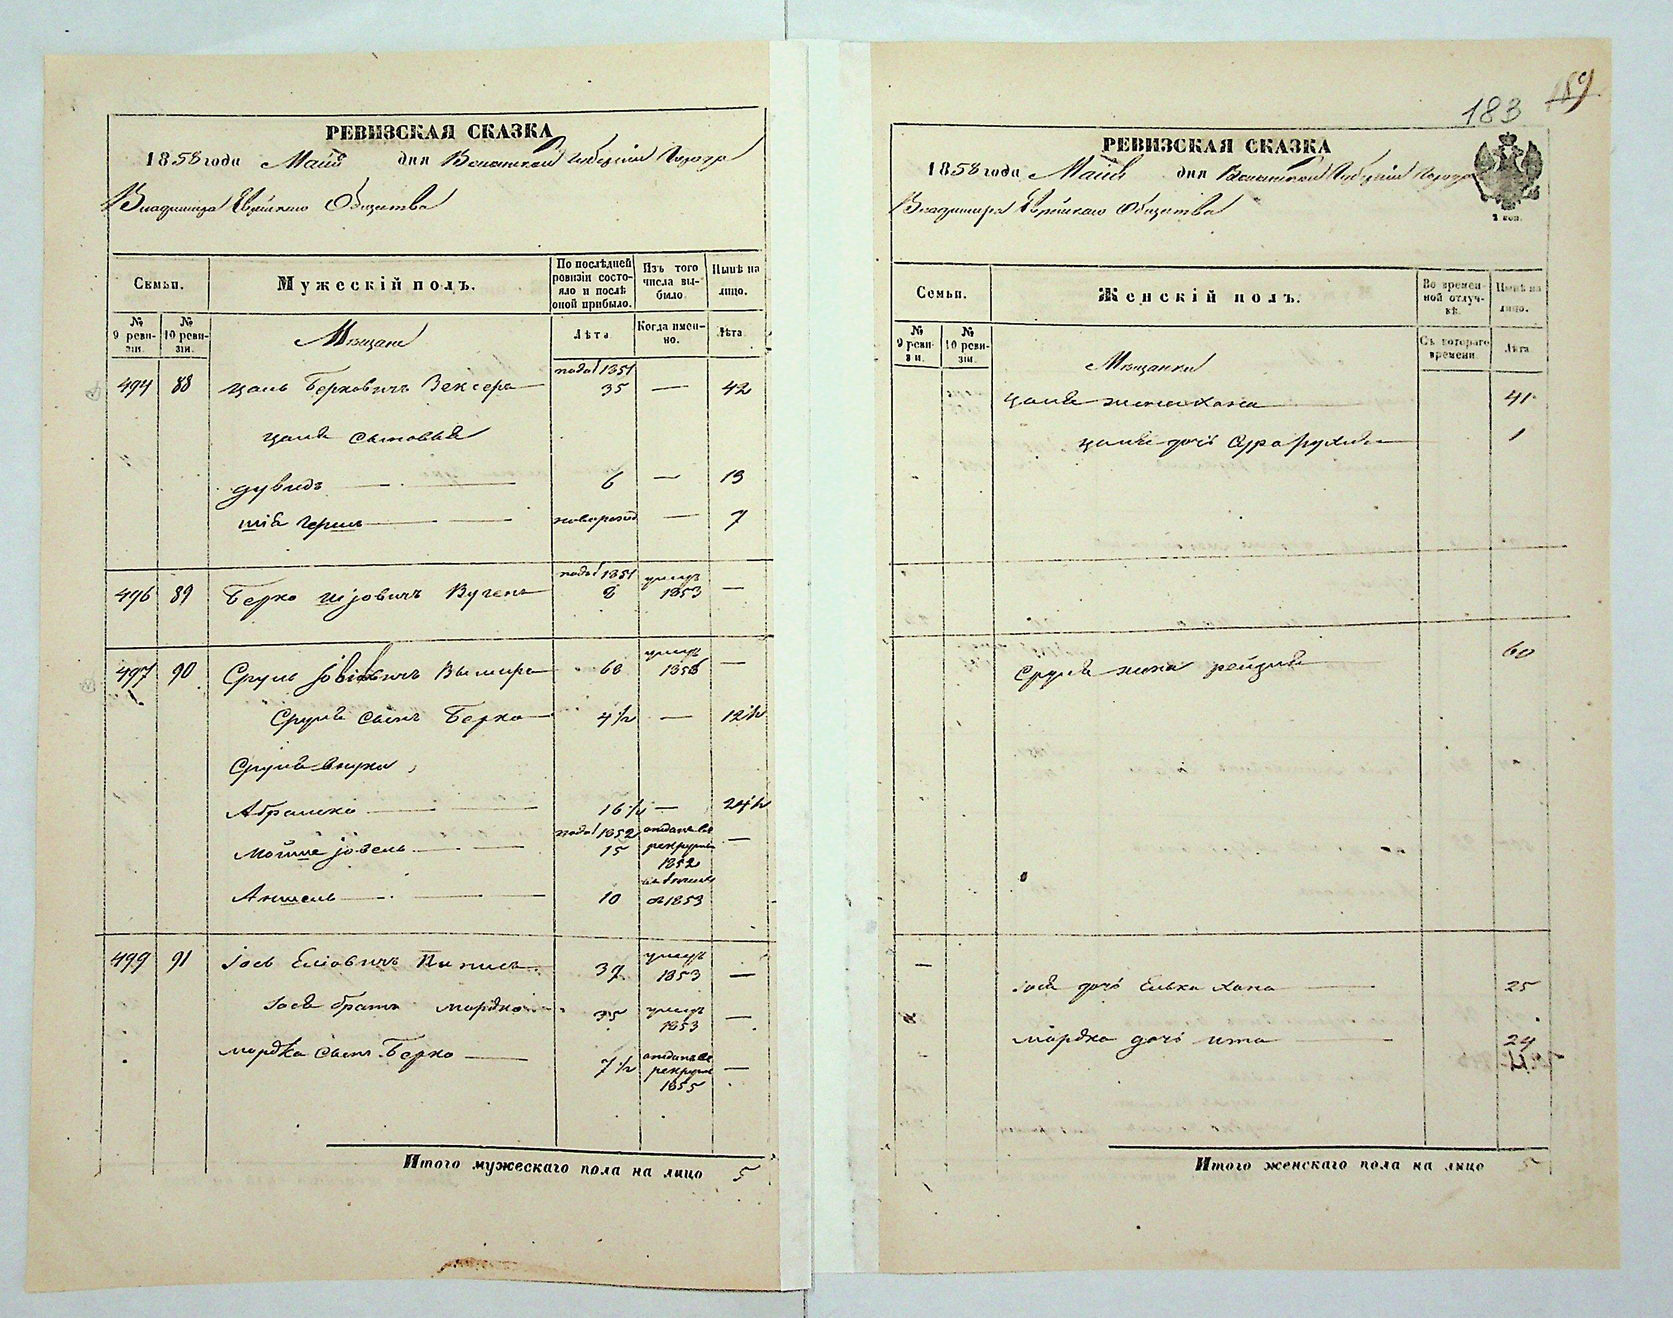 189
183
РЕВИЗСКАЯ СКАЗКА
1858 года Маія дня Волынской Губерніи Города
Владимира Еврейскаго Общества
Семьи.
Мужескій полъ.
По послѣдней ревизіи состояло и послѣ оной прибыло.
Изъ того числа выбыло
Нынѣ на лицо.
№ 9 ревизіи.
№ 10 ревизіи.
Мѣщане
Лѣта
Когда именно.
Лѣта
494 88 Цаль Берковичъ Вексеръ 35 — 42
Цаля сыновья
Дувидъ 6 — 13
Шія Гершъ новорожд — 7
496 89 Берко 1851 8 умеръ 1853 —
497 90 Сруль 60 умеръ —
Сруля сынъ Берко 4½ — 12½
Сруля внуки
Абрамко 16½ — 24½
Мошко Іовель 1852 15 отданъ въ рекруты 1852 —
Аншель 10 1853
499 91 Іось 37 умеръ 1853 —
Іося братъ Мордко 35 умеръ 1853 —
Мордка сынъ Берко 7½ отданъ въ рекруты 1855 —
Итого мужескаго пола на лицо 5
РЕВИЗСКАЯ СКАЗКА
1858 года Маія дня Волынской Губерніи Города
Владимира Еврейскаго Общества
2 коп.
Семьи.
Женскій полъ.
Во временной отлучкѣ.
Нынѣ на лицо.
№ 9 ревизіи.
№ 10 ревизіи.
Мѣщанки
Съ котораго времени.
Лѣта
Цаля жена Хана 41
Цаля дочь Сура Рухля 1
Сруля жена Рейзя 60
Іося дочь Элька Хана 25
Мордка дочь Ита 24
Итого женскаго пола на лицо 5